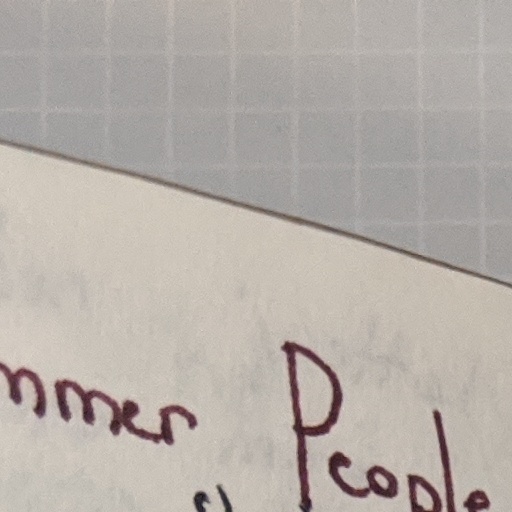 mmer People